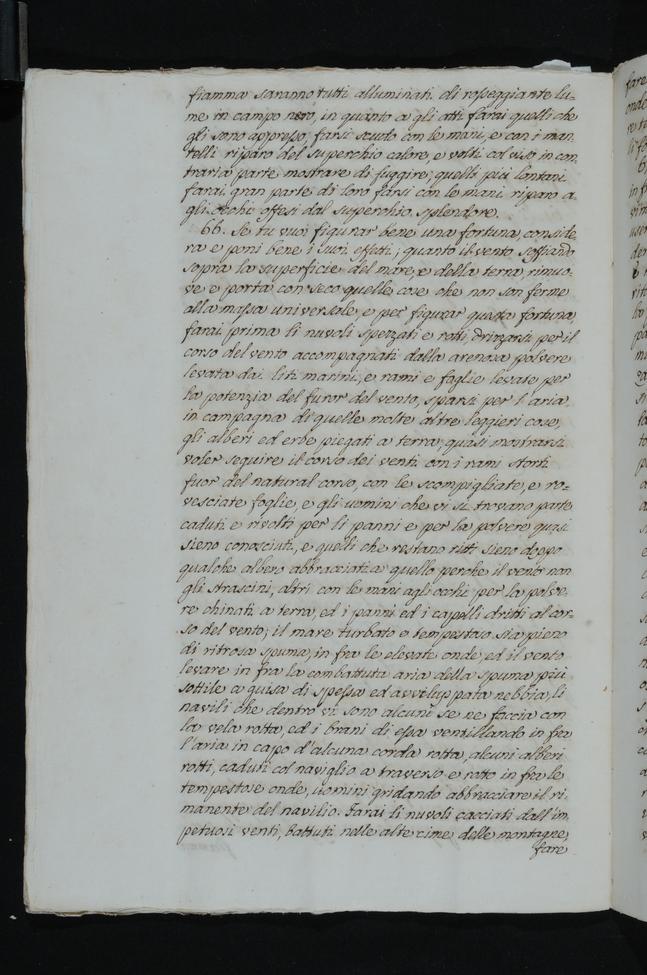 fiamma saranno tutti alluminati di rosseggiante lu-
me in campo nero, in quanto a gli atti farai quelli che
gli sono appresso, farsi scudo con le mani, e con i man-
telli riparo del superchio calore, e volti col viso in con
traria parte mostrare di fuggire; quelli più lontani
farai gran parte di loro farsi con le mani riparo a
gli occhi offesi dal superchio splendore.
66. Se tu vuoi figurar bene una fortuna, conside
ra e poni bene i suoi effetti; quanto il vento soffiando
sopra la superficie del mare, e della terra rimuo-
ve e porta con seco quelle cose che non son ferme
alla massa universale, e per figurar questa fortuna
farai prima li nuvoli spezzati e rotti, drizzarsi per il
corso del vento accompagnati dalla arenosa polvere
levata dai liti marini, e rami e foglie levate per
la potenzia del furor del vento, sparsi per l'aria
in campagna di quelle molte altre leggieri cose,
gli alberi ed erbe piegati a terra, quasi mostrarsi
voler seguire il corso dei venti con i rami storti
fuor del natural corso, con le scompigliate, e ro-
vesciate foglie, e gli uomini che vi si trovano parte
caduti e rivolti per li panni e per la polvere quasi
sieno conosciuti, e quelli che restano ritti sieno doppo
qualche albero abbracciati a quello perche il vento non
gli strascini, altri con le mani agli occhi per la polve-
re chinati a terra, ed i panni ed i capelli dritti al cor-
so del vento; il mare turbato e tempestoso sia pieno
di ritrosa spuma, in fra le elevate onde, ed il vento
levare in fra la combattuta aria della spuma più
sottile a guisa di spessa ed avviluppata nebbia, li
navili che dentro vi sono alcuni se ne faccia con
la vela rotta, ed i brani di essa ventillando in fra
l'aria in capo d'alcuna corda rotta, alcuni alberi
rotti, caduti col naviglio a traverso e rotto in fra le
tempestose onde, uomini gridando abbracciare il ri-
manente del navilio. Farai li nuvoli cacciati dall'im
petuosi venti, battuti nelle alte cime delle montagne,
fare